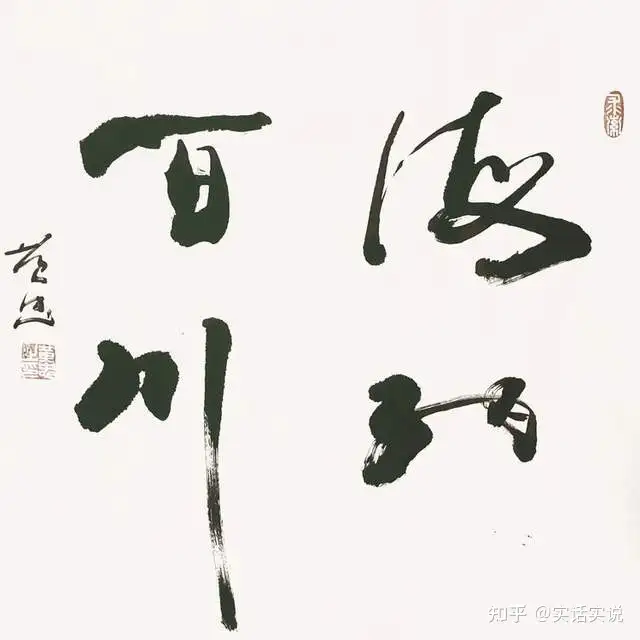 海纳
百川
知乎 @实话实说